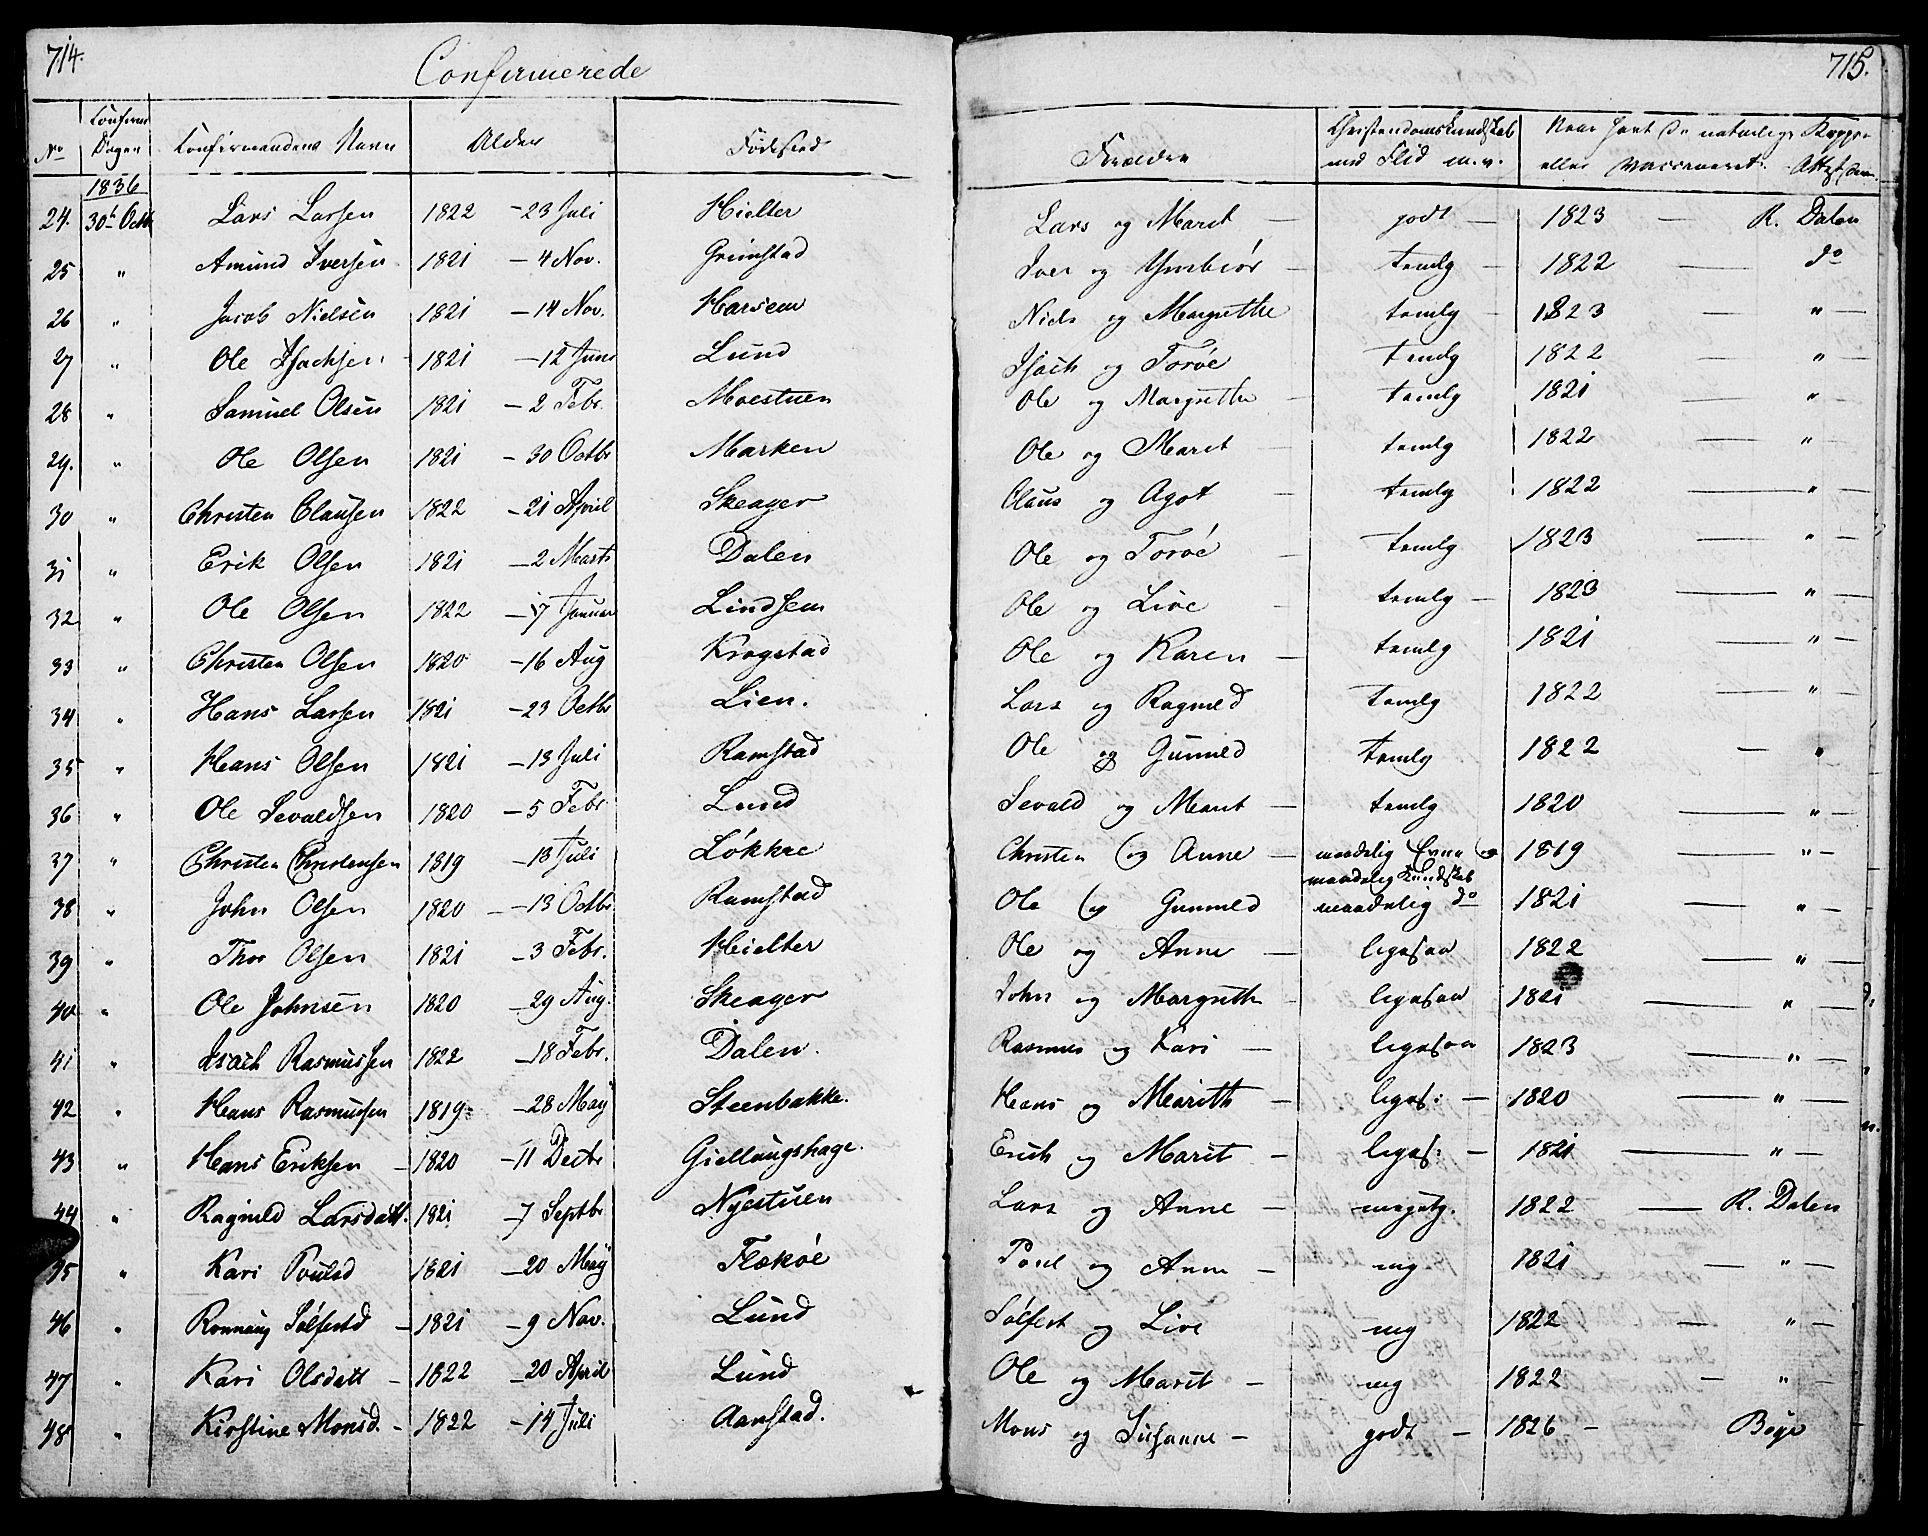 714.
Confirmerede
No | Confirm: Dagen | Confirmandens Navn | Alder | Fødested
1836
24. 30t Octb Lars Larsen 1822 - 23 Juli Hielter
25 " Amund Iversen 1821 - 4 Nov. Grimstad
26 " Jacob Nielsen 1821 - 14 Nov. Harsem
27 " Ole Isachsen 1821 - 12 Juni Lund
28 " Samuel Olsen 1821 - 2 Febr. Moestuen
29. " Ole Olsen 1821 - 30 Octbr Marken
30 " Christen Clausen 1822 - 21 April Skeager
31 " Erik Olsen 1821 - 2 Marts Dalen
32 " Ole Olsen 1822 - 7 Januar Lindsem
33 " Christen Olsen 1820 - 16 Aug Krogstad
34 " Hans Larsen 1821 - 23 Octbr Lien.
35 " Hans Olsen 1821 - 13 Juli Ramstad
36 " Ole Sevaldsen 1820 - 5 Febr. Lund
37 " Christen Christensen 1819 - 13 Juli Løkkre
38 " John Olsen 1820 - 13 Octbr Ramstad
39 " Thor Olsen 1821 - 3 Febr. Hielter
40 " Ole Johnsen 1820 - 29 Aug. Skeager
41 " Isach Rasmussen 1822 - 18 Febr. Dalen.
42 " Hans Rasmussen 1819 - 28 May Steenbakke.
43 " Hans Eriksen - 1820 - 11 Decbr Giellungshage.
44 " Ragnild Larsdatt. 1821 - 7 Septbr Nyestuen
45 " Kari Poulsd 1821 - 20 May Flækøe
46 " Ronnaug Sølfestd - 1821 - 9 Nov. Lund
47 " Kari Olsdatt - 1822 - 20 April Lund
48 " Kirstine Monsd. - 1822 - 14 Juli Aanstad.
715.
Forældre | Christendomskundskab med Flid m.v. | Naar havt de naturlige Kopper eller vaccineret. Attest
Lars og Marit - godt - 1823 - R. Dalen
Iver og Ymbiør - temlg - 1822 - do
Niels og Margrethe temlg - 1823 - " -
Isach og Toroe temlg 1822 - " -
Ole og Margrethe - temlg 1821 - " -
Ole og Marit - temlg 1822 - "
Claus og Agot - temlg 1822 - " -
Ole og Toroe - temlg 1823 - " -
Ole og Live - temlg - 1823 - " -
Ole og Karen - temlg 1821 - " -
Lars og Ragnild temlg 1822 - " -
Ole og Gunild temlg 1822 - "
Sevald og Marit - temlg 1820 - " -
Christen og Anne - maadelig Evne og 1819 - " -
maadelig Kundskab
Ole og Gunnild maadelig do 1821 - " -
Ole og Anne - ligesaa 1822 - " -
John og Margrethe - ligesaa 1821 - " -
Rasmus og Kari - ligesaa 1823 - " -
Hans og Marith - liges: - 1820 - " -
Erich og Marit - liges: - 1821 - " -
Lars og Anne - megetg. 1822 - R. Dalen
Poul og Anne - mg 1821 - " -
Sølfest og Live mg 1822 - " -
Ole og Marit - mg 1822 - " -
Mons og Susanne - godt - 1826 - Bøye